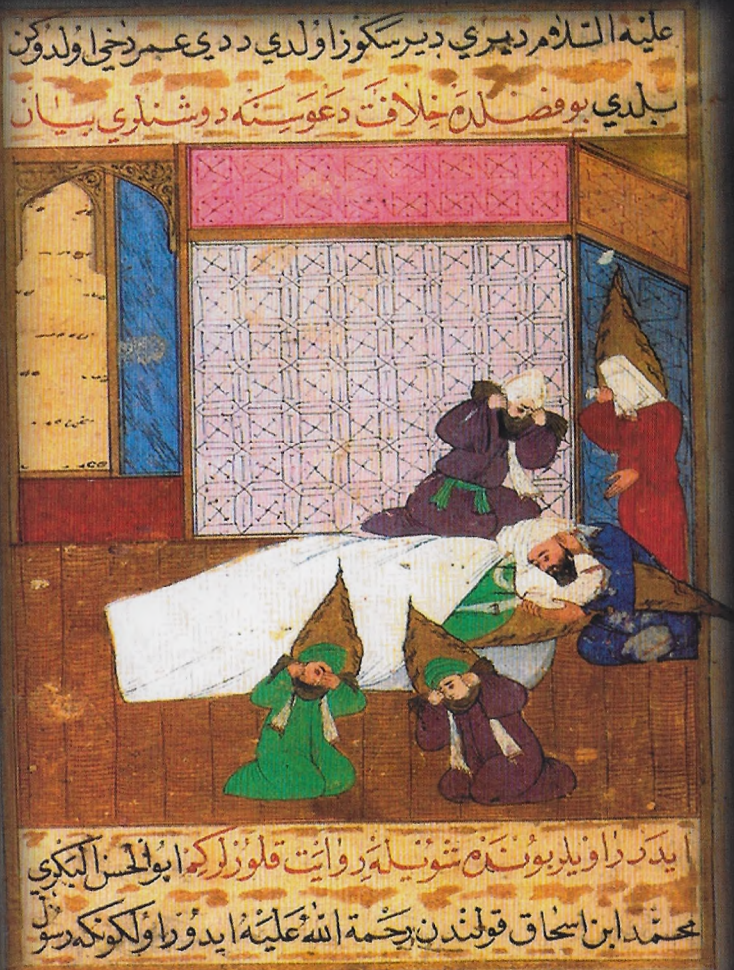 عليه السلام ديري دير سكوز اولدي ددي عمر دخي اولدوكن
بلدي بو فصلده خلافت دعوسنه دوشنلري بيان
ايدر راويلر بونده شويله روايت قلورلركم ابوالحسن البكري
محمد ابن اسحاق قولندن رحمة الله عليه ايدور اولكونكه رسول